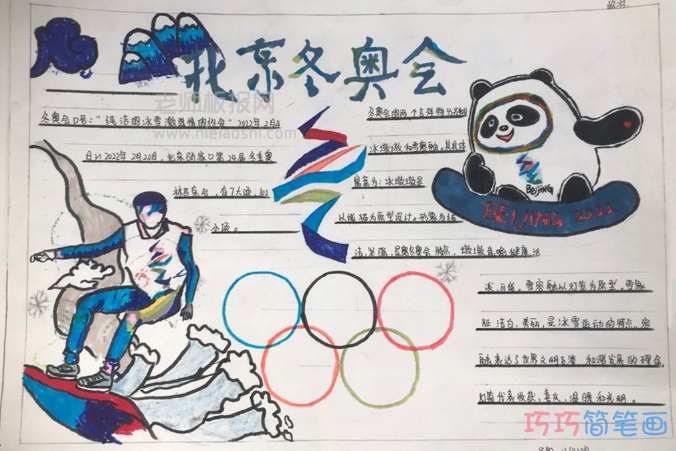 北京冬奥会
老师板报网
www.nielaoshi.com
冬奥会口号:"纯洁的冰雪 激情的约会" 2022年2月4
日以2022年2月20日,北京张家口第24届冬季奥
林匹克会,有7大项,
小项。
冬奥会的两个吉祥物分别
冰墩墩和雪容融,其中
寓意为:冰墩墩是
以熊猫为原型设计。形象为
洁、坚强、是冬奥会特点,墩墩意喻健康、活
泼、可爱。雪容融以灯笼为原型。雪象
征洁白、美丽,是冰雪运动的特点。容
融表达了世界文明互鉴 和谐发展的理念
代表收获、喜庆、温暖和光明。
Beijing
BEIJING 2022
巧巧简笔画